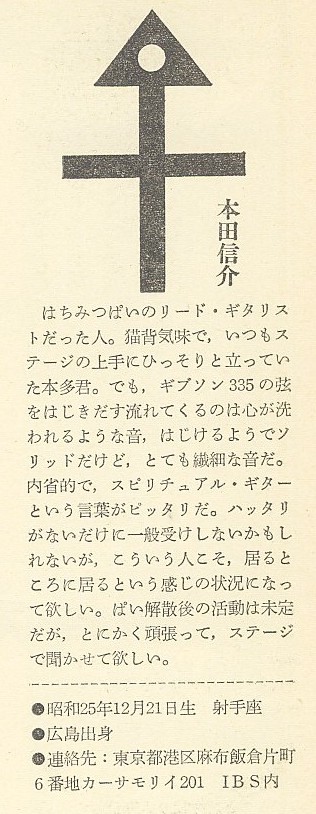 本田信介
はちみつぱいのリード・ギタリス
トだった人。猫背気味で，いつもス
テージの上手にひっそりと立ってい
た本多君。でも，ギブソン335の弦
をはじきだす流れてくるのは心が洗
われるような音，はじけるようでソ
リッドだけど，とても繊細な音だ。
内省的で，スピリチュアル・ギター
という言葉がピッタリだ。ハッタリ
がないだけに一般受けしないかもし
れないが，こういう人こそ，居ると
ころに居るという感じの状況になっ
て欲しい。ぱい解散後の活動は未定
だが，とにかく頑張って，ステージ
で聞かせて欲しい。
●昭和25年12月21日生　射手座
●広島出身
●連絡先：東京都港区麻布飯倉片町
6番地カーサモリイ201　IBS内